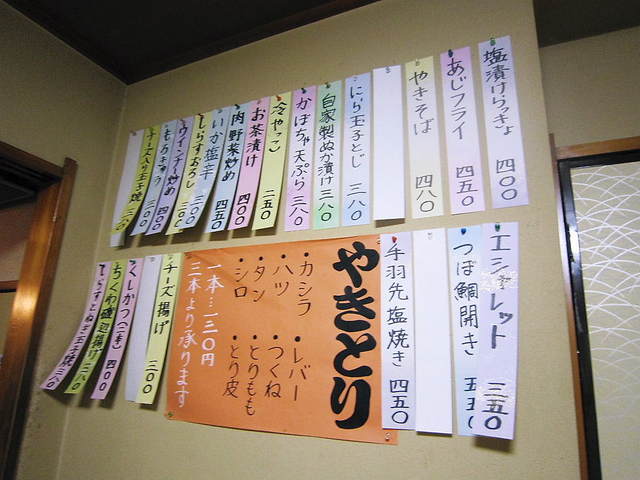 塩漬けらっきょ 四〇〇
あじフライ 四五〇
やきそば 四八〇
にら玉子とじ 三八〇
自家製ぬか漬け 三八〇
かぼちゃ天ぷら 三八〇
冷やっこ 二五〇
お茶漬け 四〇〇
肉野菜炒め 四五〇
いか塩辛 三〇〇
しらすおろし 三〇〇
ウインナー炒め
もろきゅう 三〇〇
チーズ入り玉子焼
エシャレット 三五〇
つぼ鯛開き 五五〇
手羽先塩焼き 四五〇
やきとり
・カシラ ・レバー
・ハツ ・つくね
・タン ・とりもも
・シロ ・とり皮
一本…一三〇円
三本より承ります
チーズ揚げ 三〇〇
くしかつ(二本) 四〇〇
ちくわ磯辺揚げ 三八〇
しらすとねぎ玉子焼